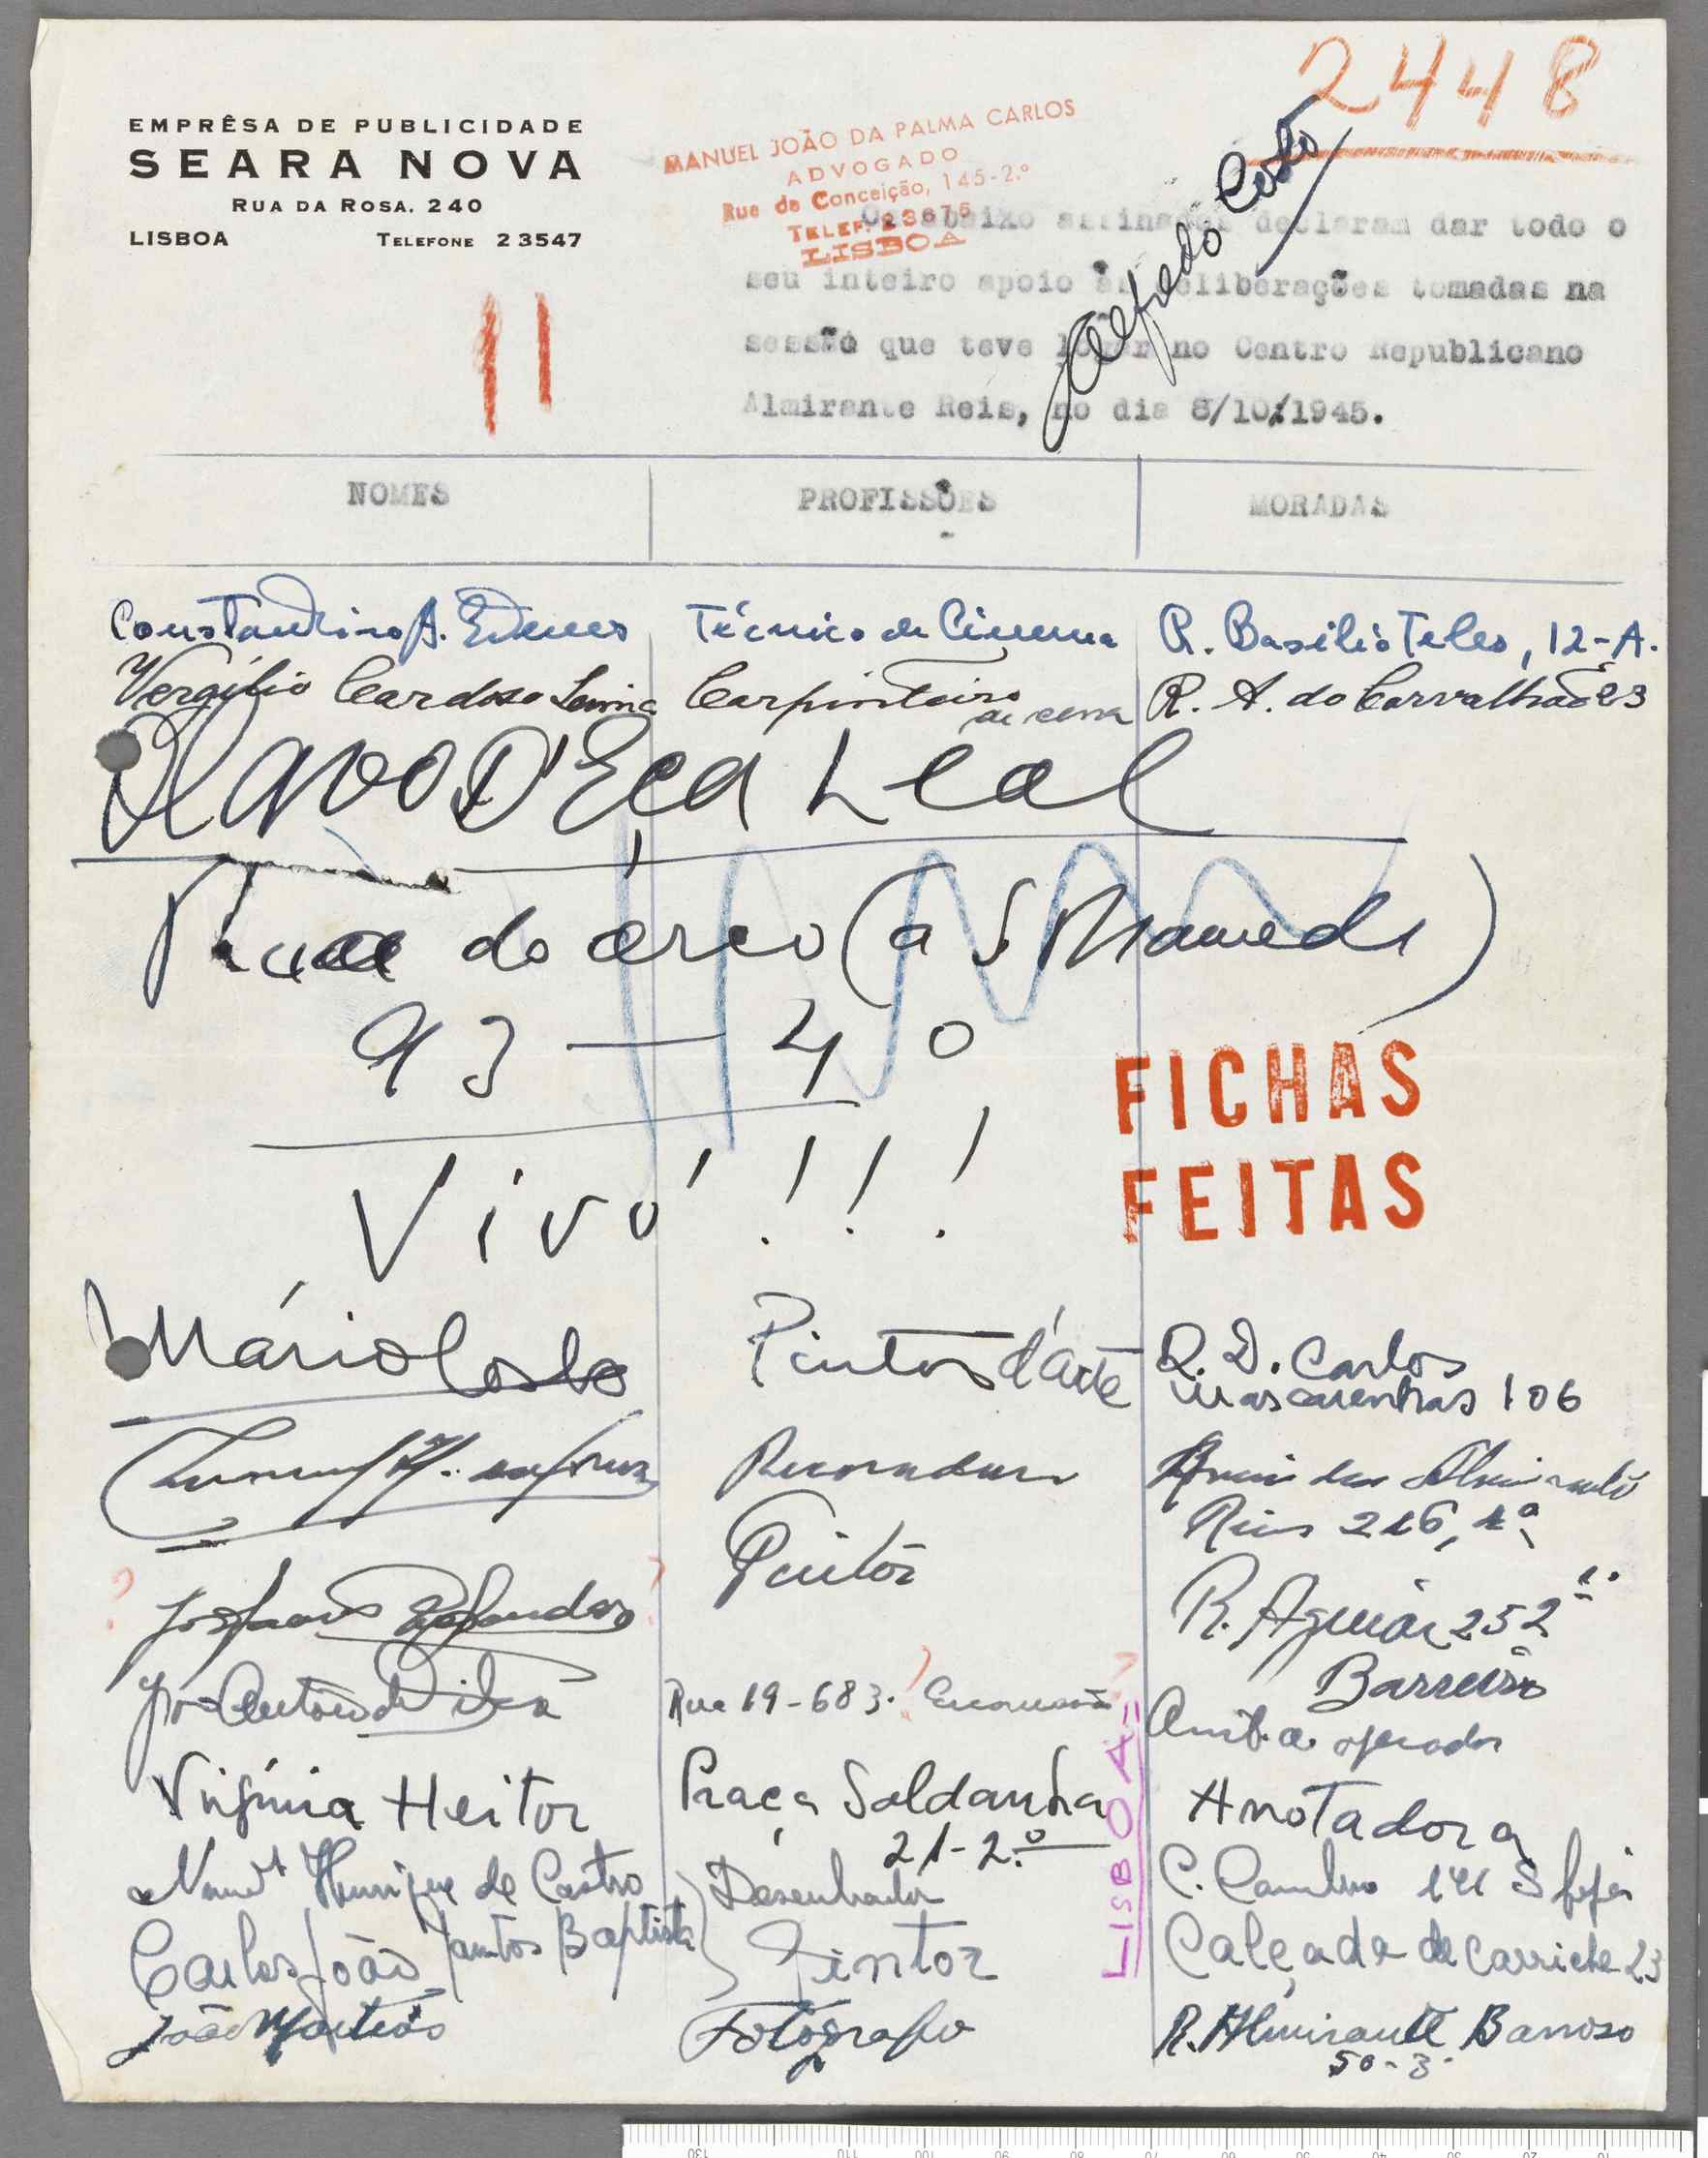 2448
EMPRÊSA DE PUBLICIDADE
SEARA NOVA
RUA DA ROSA. 240
LISBOA TELEFONE 23547
MANUEL JOÃO DA PALMA CARLOS
ADVOGADO
Rua da Conceição, 145-2.º
TELEF. 23675
LISBOA
Alfredo Costa
11
Os abaixo assinados declaram dar todo o
seu inteiro apoio às deliberações tomadas na
sessão que teve lugar no Centro Republicano
Almirante Reis, no dia 8/10/1945.
NOMES PROFISSÕES MORADAS
Constantino A. Esteves Técnico de Cinema R. Basilio Teles, 12-A.
Vergílio Cardoso Carpinteiro de cena R. A. do Carvalhão 23
Olavo D'Eça Leal
Rua do arco (a S Mamede)
93 — 4º
Vivó!!!
FICHAS
FEITAS
Mário Costa Pintor d'Arte R. D. Carlos
Mascarenhas 106
Almirante
Reis 216, 1º
? ? Pintor R. Aguiar 252
Barreiro
José António da Silva Rue 19-683. ? Encarnação ?
operador
Virgínia Heitor Praça Saldanha Anotadora
21-2.º
LISBOA=
Henrique de Castro Desenhador C. Combro
Carlos João Santos Baptista Pintor Calçada de Carriche 23
João Martins Fotógrafo R. Almirante Barroso
50-3.